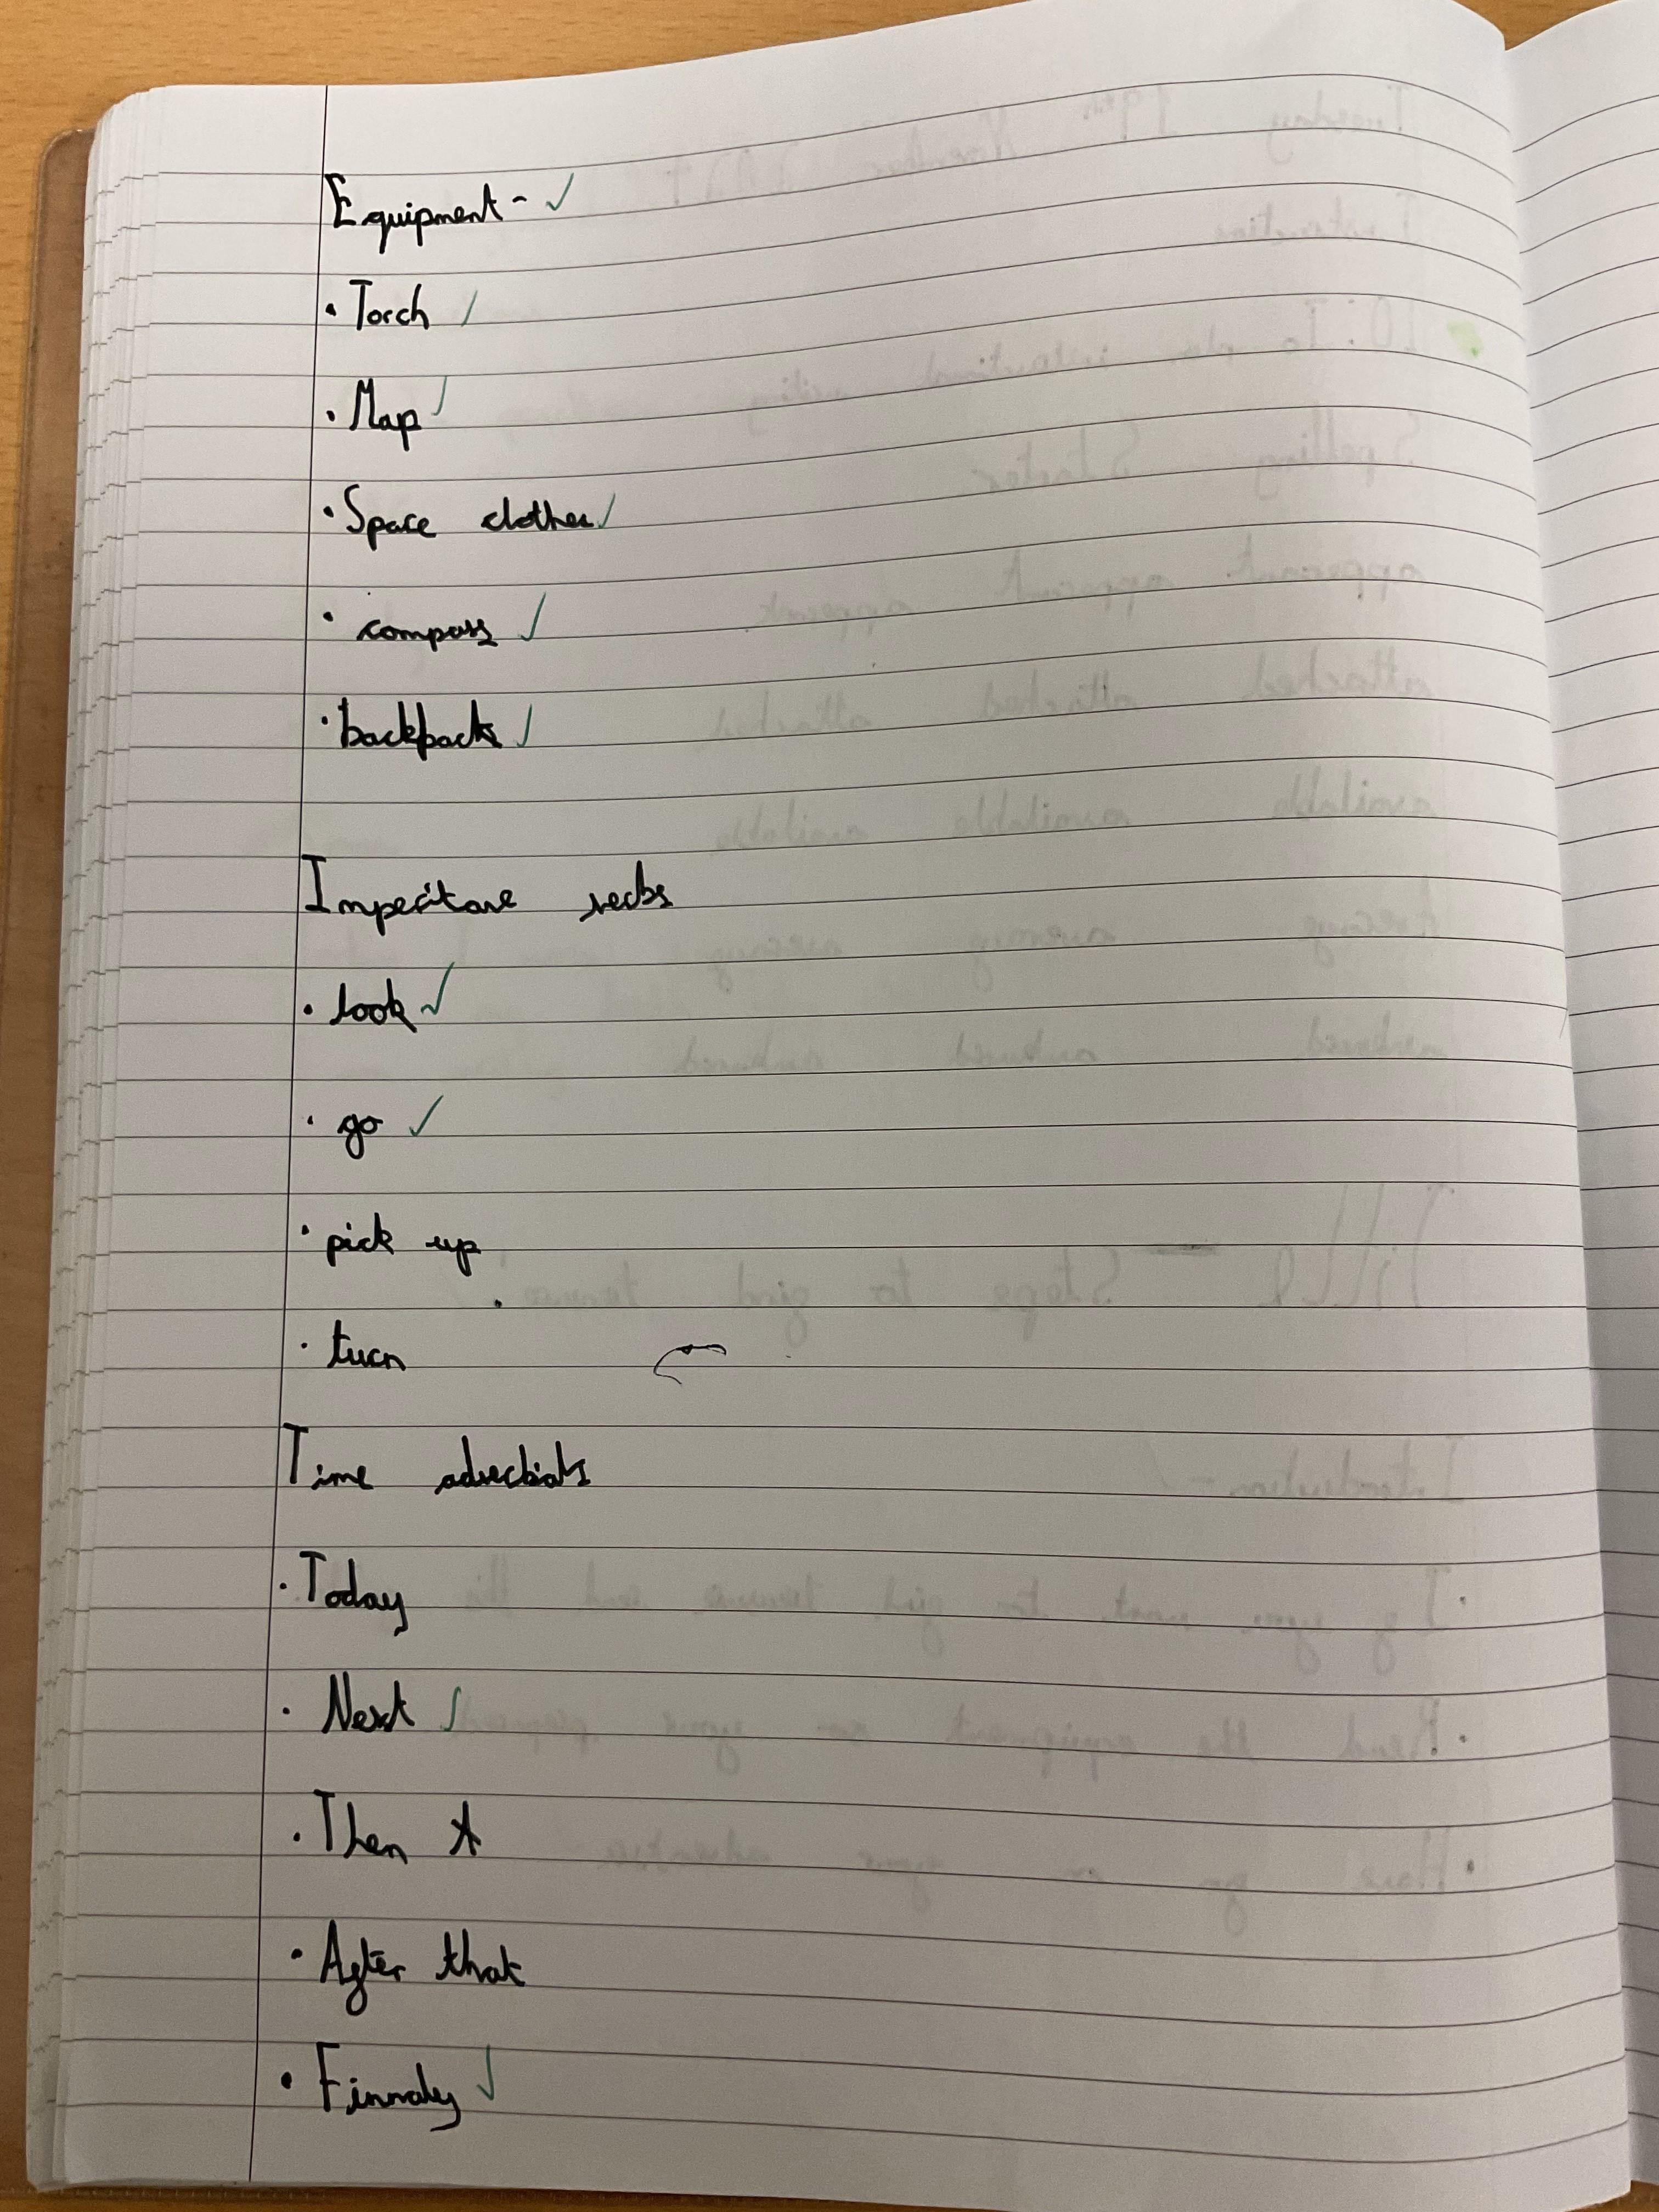 Equipment - ✓
• Torch ✓
• Map ✓
• Space clothes ✓
• compass ✓
• backpack ✓
Imperitave verbs
• look ✓
• go ✓
• pick up
• turn
Time adverbials
• Today
• Next ✓
• Then
• After that
• Finnaly ✓